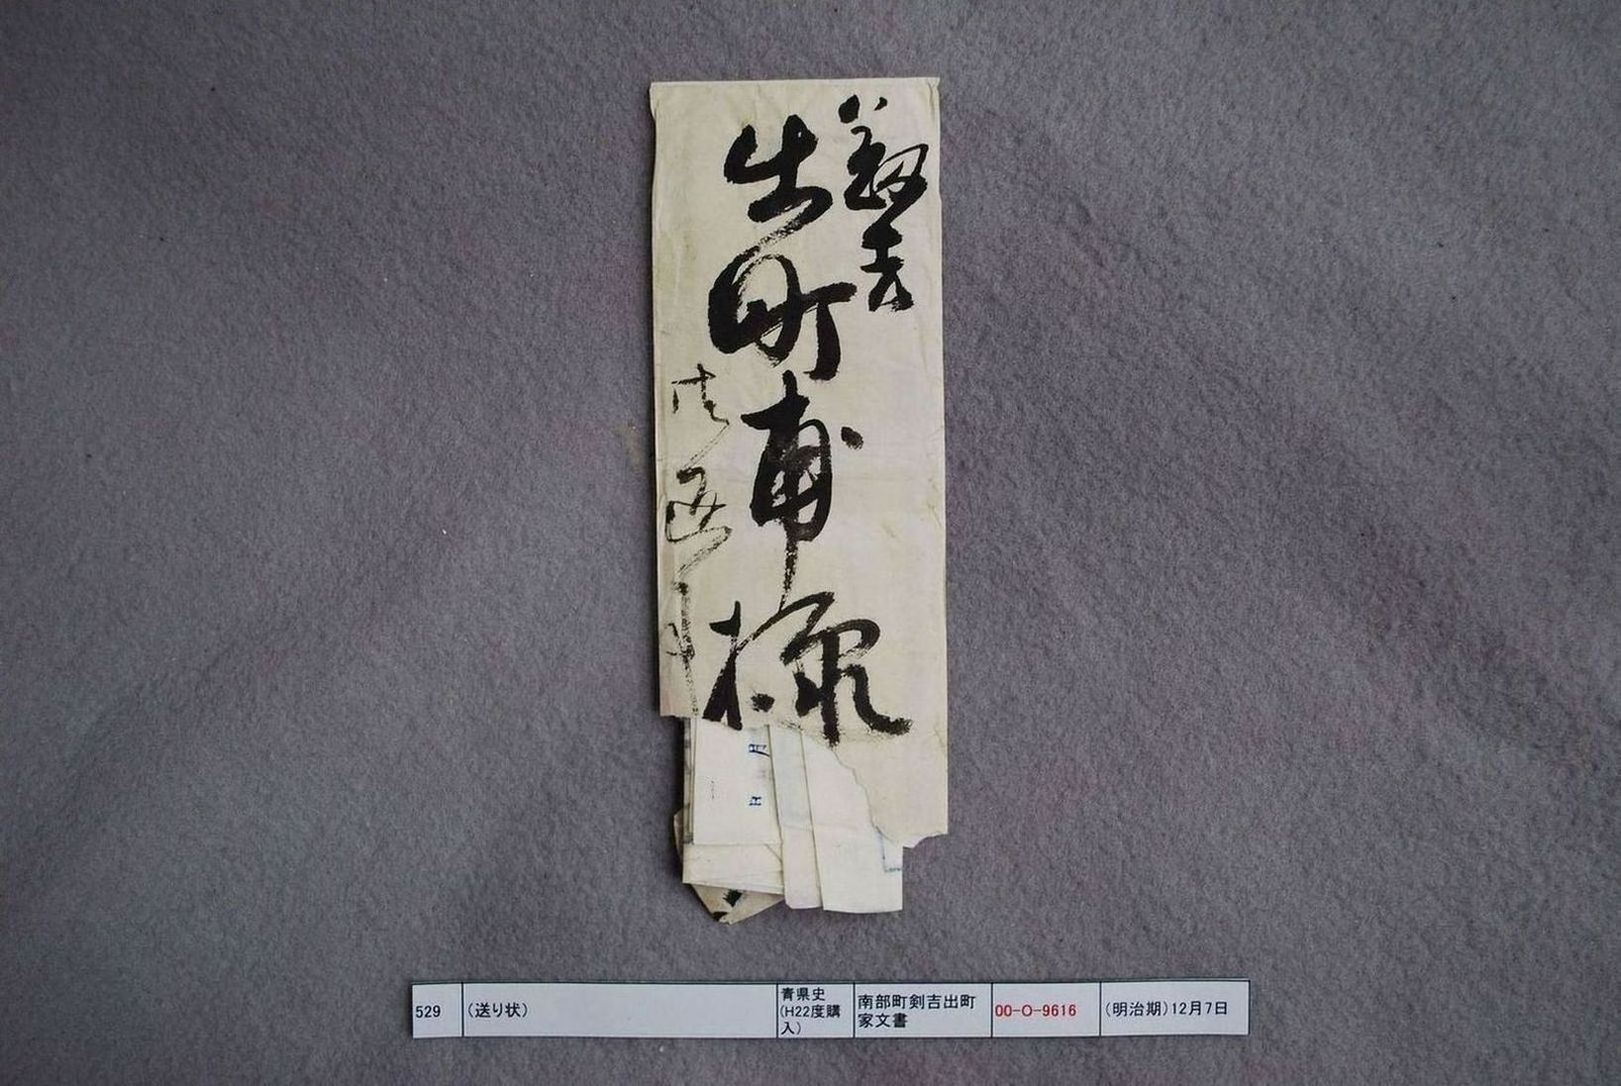 剱吉
出町甫様
529
(送り状)
青県史
(H22度購
入)
南部町剣吉出町
家文書
00-O-9616
(明治期)12月7日